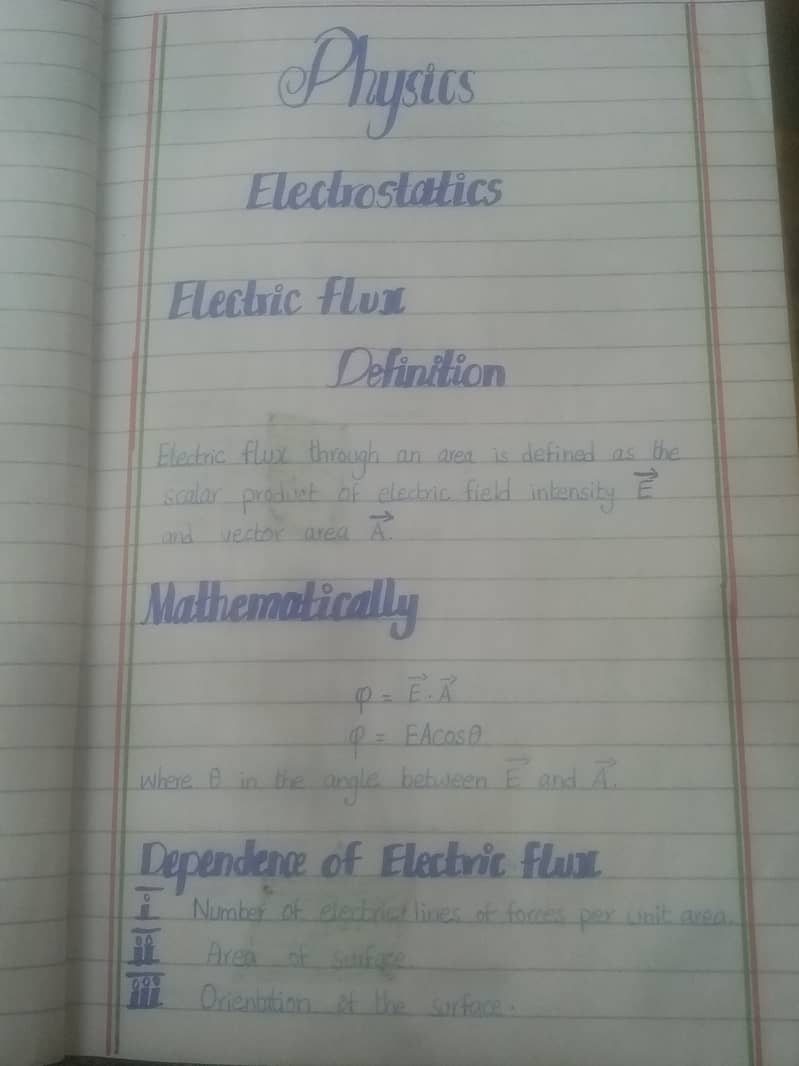 Physics
Electrostatics
Electric flux
Definition
Electric flux through an area is defined as the
scalar product of electric field intensity E⃗
and vector area A⃗.
Mathematically
φ = E⃗ . A⃗
φ = EAcosθ
where θ in the angle between E⃗ and A⃗.
Dependence of Electric flux
i Number of electric lines of forces per unit area.
ii Area of surface.
iii Orientation of the surface.